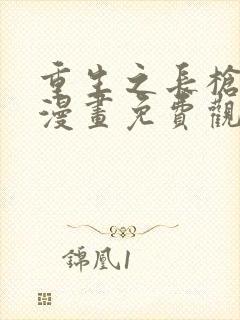 重生之長槍
漫畫免費觀
錦凰1